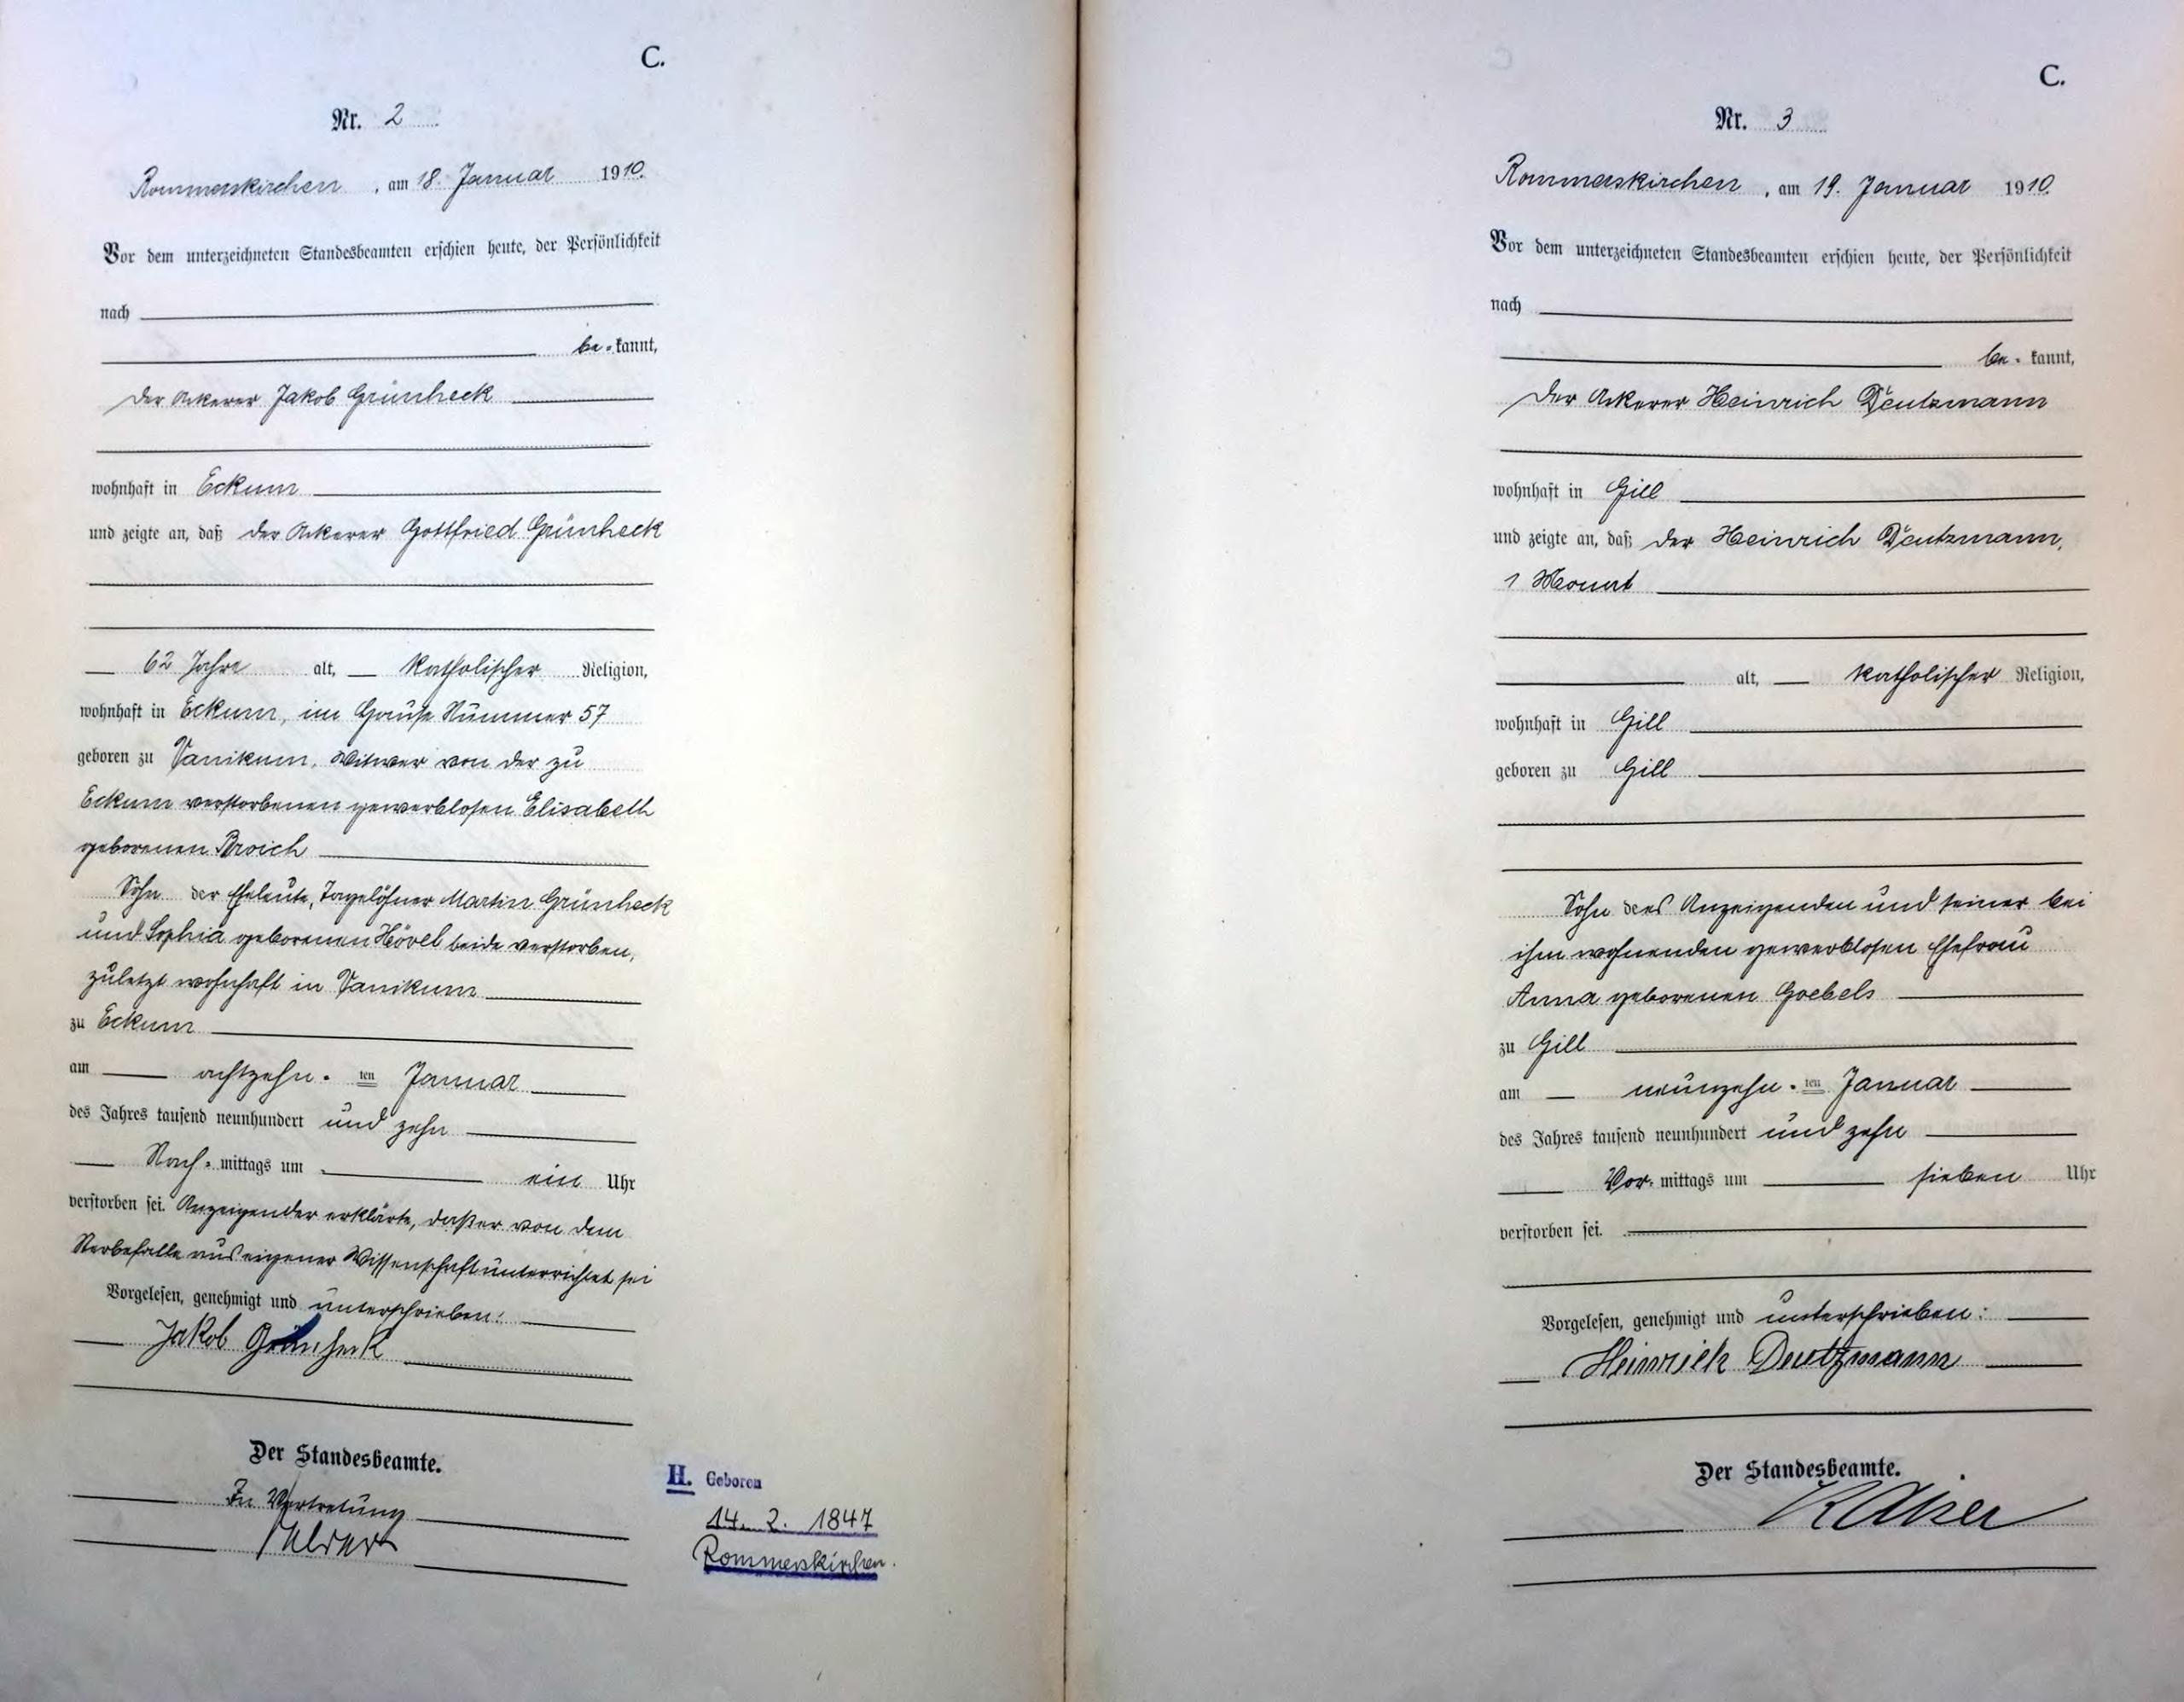 C.
Nr. 2
Rommerskirchen, am 18. Januar 1910.
Vor dem unterzeichneten Standesbeamten erschien heute, der Persönlichkeit
nach
be-kannt,
der Ackerer Jakob Grünheck
wohnhaft in Eckum
und zeigte an, daß der Ackerer Gottfried Grünheck
62 Jahre alt, katholischer Religion,
wohnhaft in Eckum, im Hause Nummer 57
geboren zu Vanikum, Witwer von der zu
Eckum verstorbenen gewerblosen Elisabeth
geborenen Broich
Sohn der Eheleute, Tagelöhner Martin Grünheck
und Sophia geborenen Hövel beide verstorben,
zuletzt wohnhaft in Vanikum
zu Eckum
am achtzehn-ten Januar
des Jahres tausend neunhundert und zehn
Nach-mittags um ein Uhr
verstorben sei. Anzeigender erklärte, daß er von dem
Sterbefalle aus eigener Wissenschaft unterrichtet sei
Vorgelesen, genehmigt und unterschrieben:
Jakob Grünheck
Der Standesbeamte.
In Vertretung
H. Geboren
14. 2. 1847
Rommerskirchen.
C.
Nr. 3
Rommerskirchen, am 19. Januar 1910.
Vor dem unterzeichneten Standesbeamten erschien heute, der Persönlichkeit
nach
be-kannt,
der Ackerer Heinrich Deutzmann
wohnhaft in Gill
und zeigte an, daß der Heinrich Deutzmann,
1 Monat
alt, katholischer Religion,
wohnhaft in Gill
geboren zu Gill
Sohn des Anzeigenden und seiner bei
ihm wohnenden gewerblosen Ehefrau
Anna geborenen Goebels
zu Gill
am neunzehn-ten Januar
des Jahres tausend neunhundert und zehn
Vor-mittags um sieben Uhr
verstorben sei.
Vorgelesen, genehmigt und unterschrieben:
Heinrich Deutzmann
Der Standesbeamte.